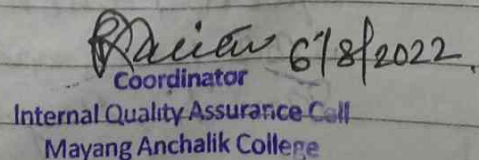 6/8/2022.
Coordinator
Internal Quality Assurance Cell
Mayang Anchalik College